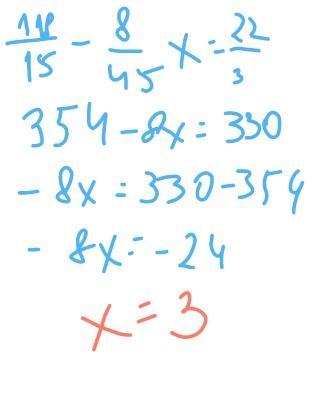 118/15 - 8/45 x = 22/3
354 - 8x = 330
- 8x = 330 - 354
- 8x = - 24
x = 3